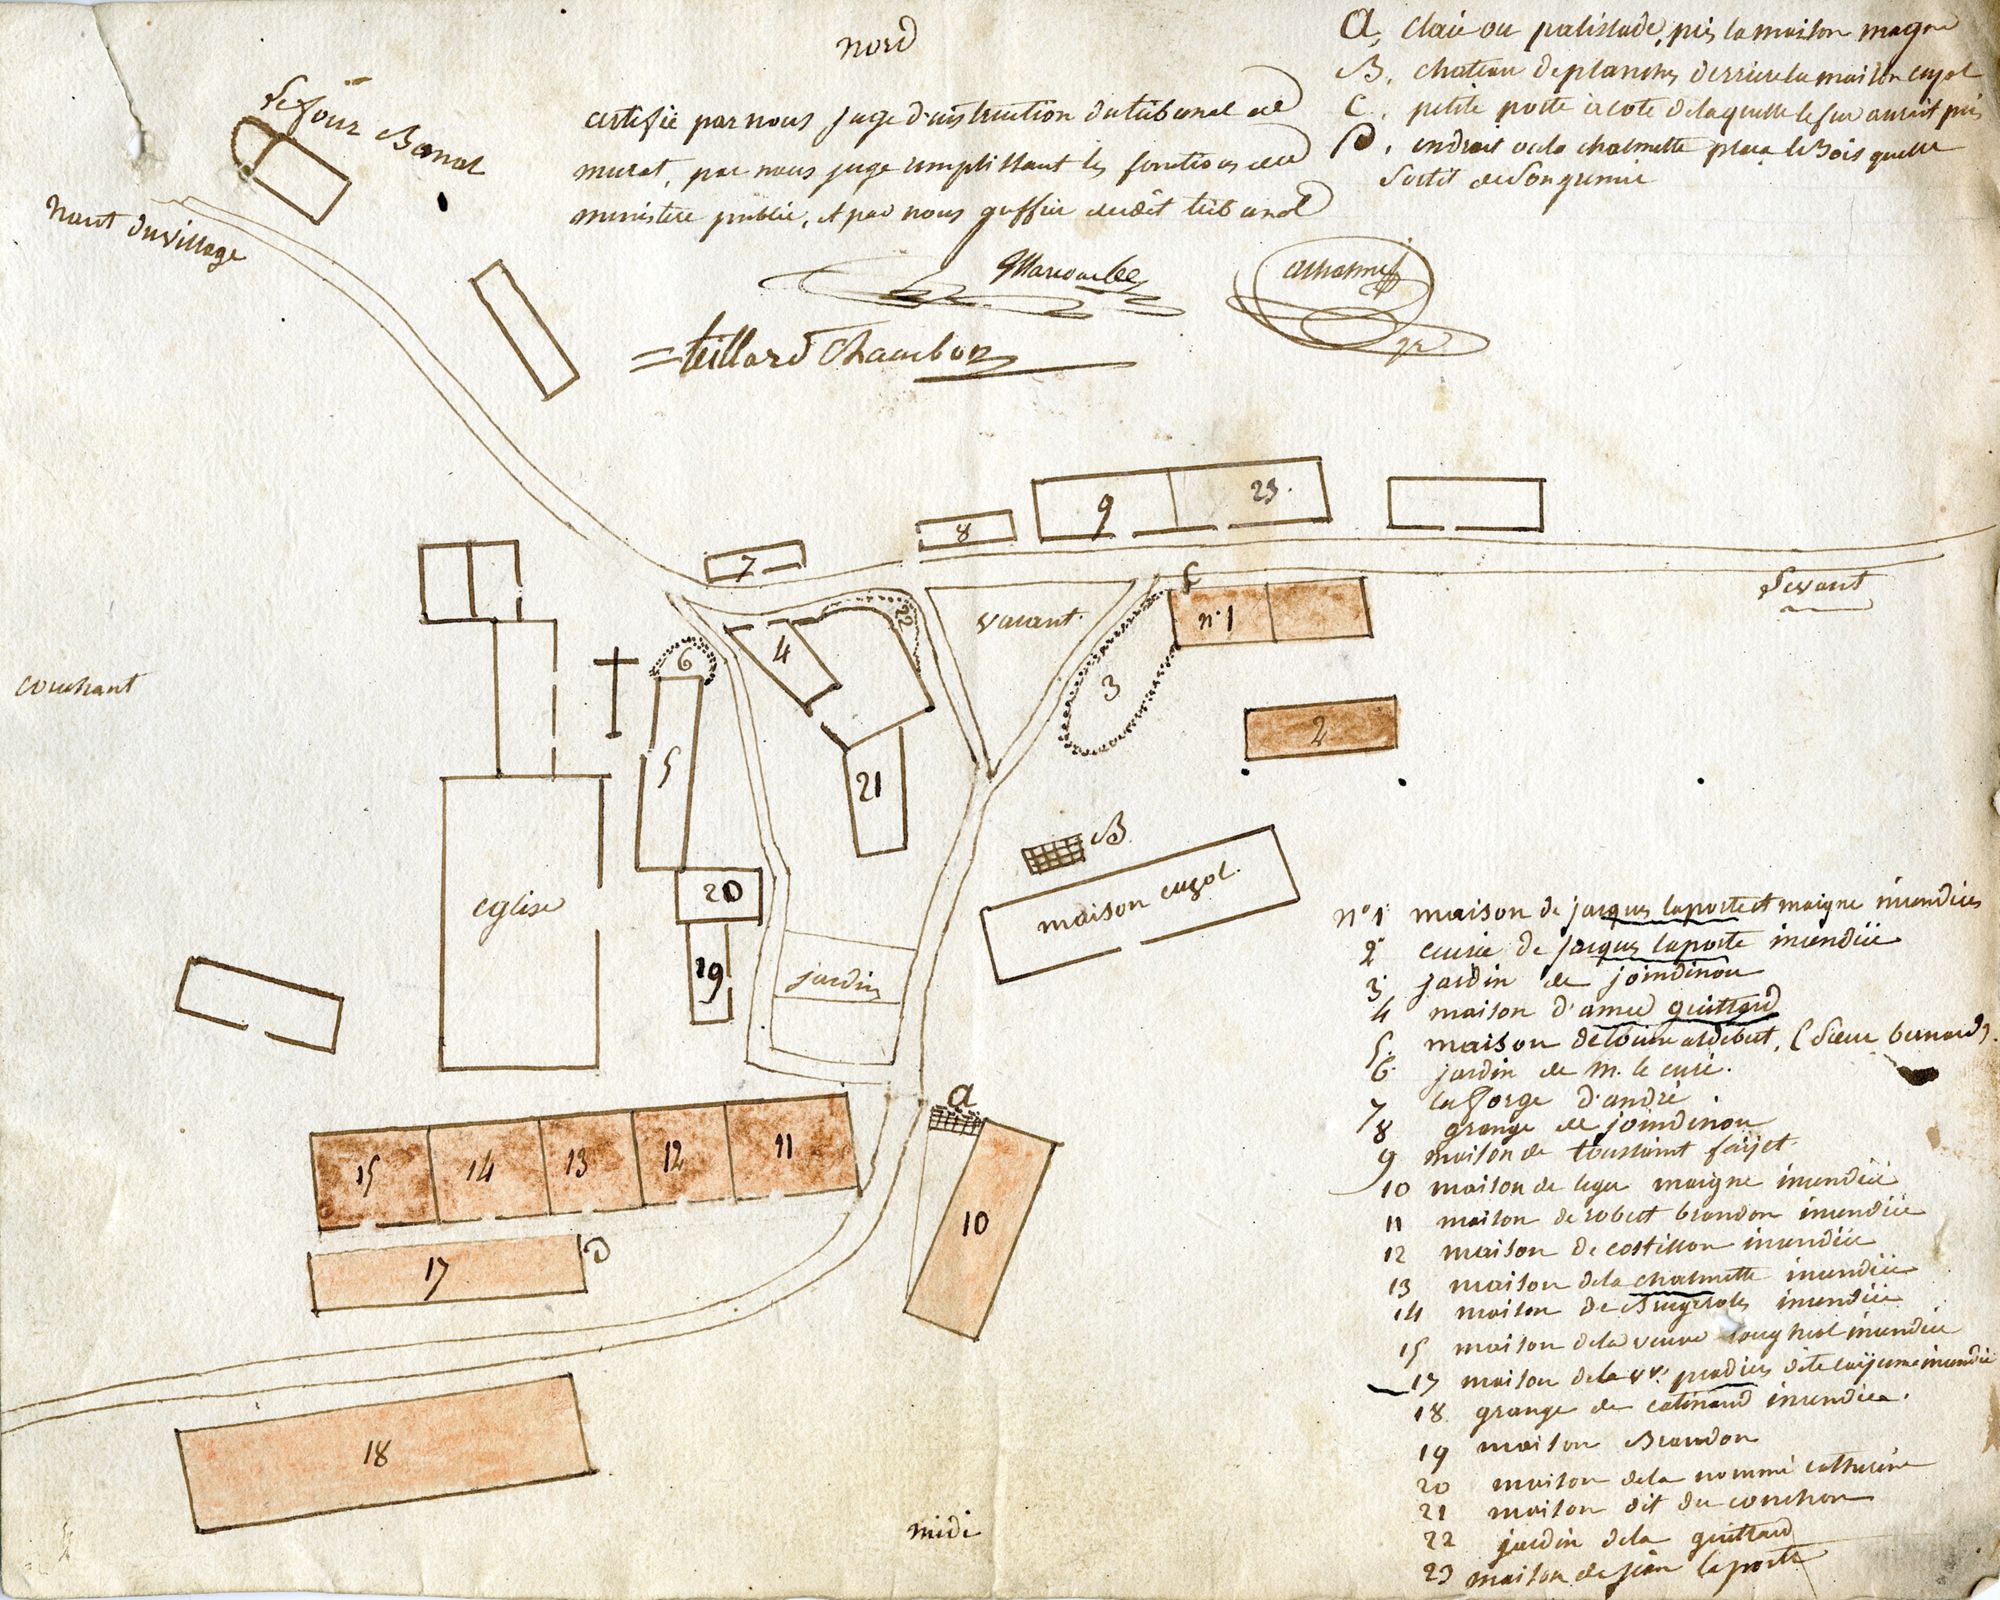 nord
a, claie ou palissade, près la maison magne
B. chateau de planches derriere la maison cuzol
C. petite porte a coté de laquelle le feu aurait pris
D. endroit ou la chalmette plaça le Bois quelle
sortit de son grenier
certifié par nous juge d'instruction du tribunal de
murat, par nous juge remplissant les fonctions du
ministere public, et par nous greffier dudit tribunal
teillard Chambon
Le four Banal
haut du village
7
8
9
23.
Levant
vacant
C
n° 1
22
4
6
3
couchant
2
5
21
B
maison cuzol.
20
eglise
19
jardin
a
15
14
13
12
11
10
17
D
18
midi
n° 1 maison de jacques laporte et maigne incendiées
2 ecurie de jacques laporte incendiée
3 jardin de joindinou
4 maison d'amed guittard
5. maison de (sieur bernard).
6. jardin de m. le curé.
7 la forge d'andré
8 grange de joindinou
9 maison de toussaint farjet
10 maison de leger maigne incendiée
11 maison de robert brandon incendiée
12 maison de costillon incendiée
13 maison de la chalmette incendiée
14 maison de incendiée
15 maison de la veuve incendiée
17 maison de la vve. pradier dite incendiée
18 grange de catinaud incendiée.
19 maison Brandon
20 maison de la nommé catherine
21 maison dit du couchou
22 jardin de la guittard
23 maison de jean laporte